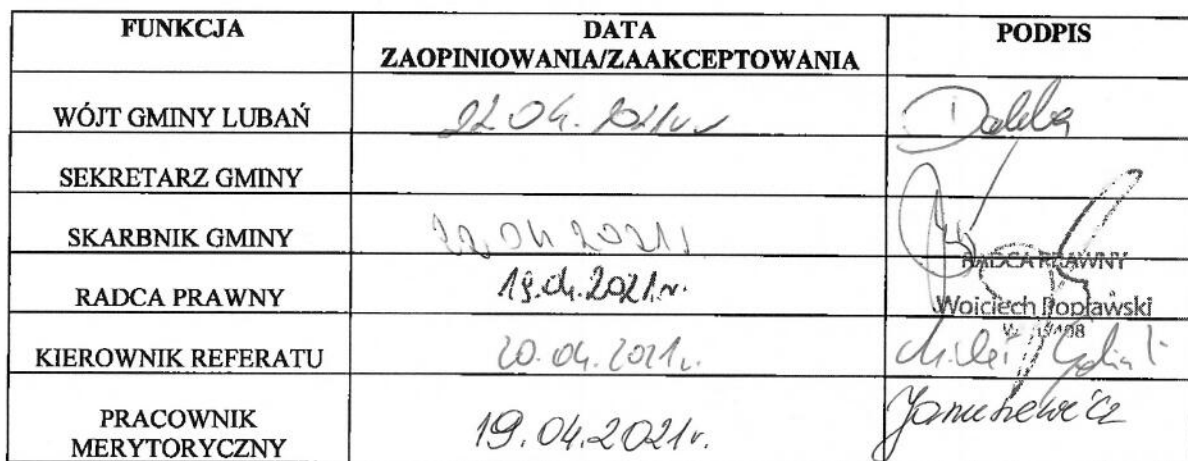 FUNKCJA DATA PODPIS
ZAOPINIOWANIA/ZAAKCEPTOWANIA
WÓJT GMINY LUBAŃ 22.04.2021r.
SEKRETARZ GMINY
SKARBNIK GMINY 22.04.2021r.
RADCA PRAWNY
RADCA PRAWNY 19.04.2021r.
Wojciech Popławski
KIEROWNIK REFERATU 20.04.2021r.
PRACOWNIK
MERYTORYCZNY 19.04.2021r. Januszewicz